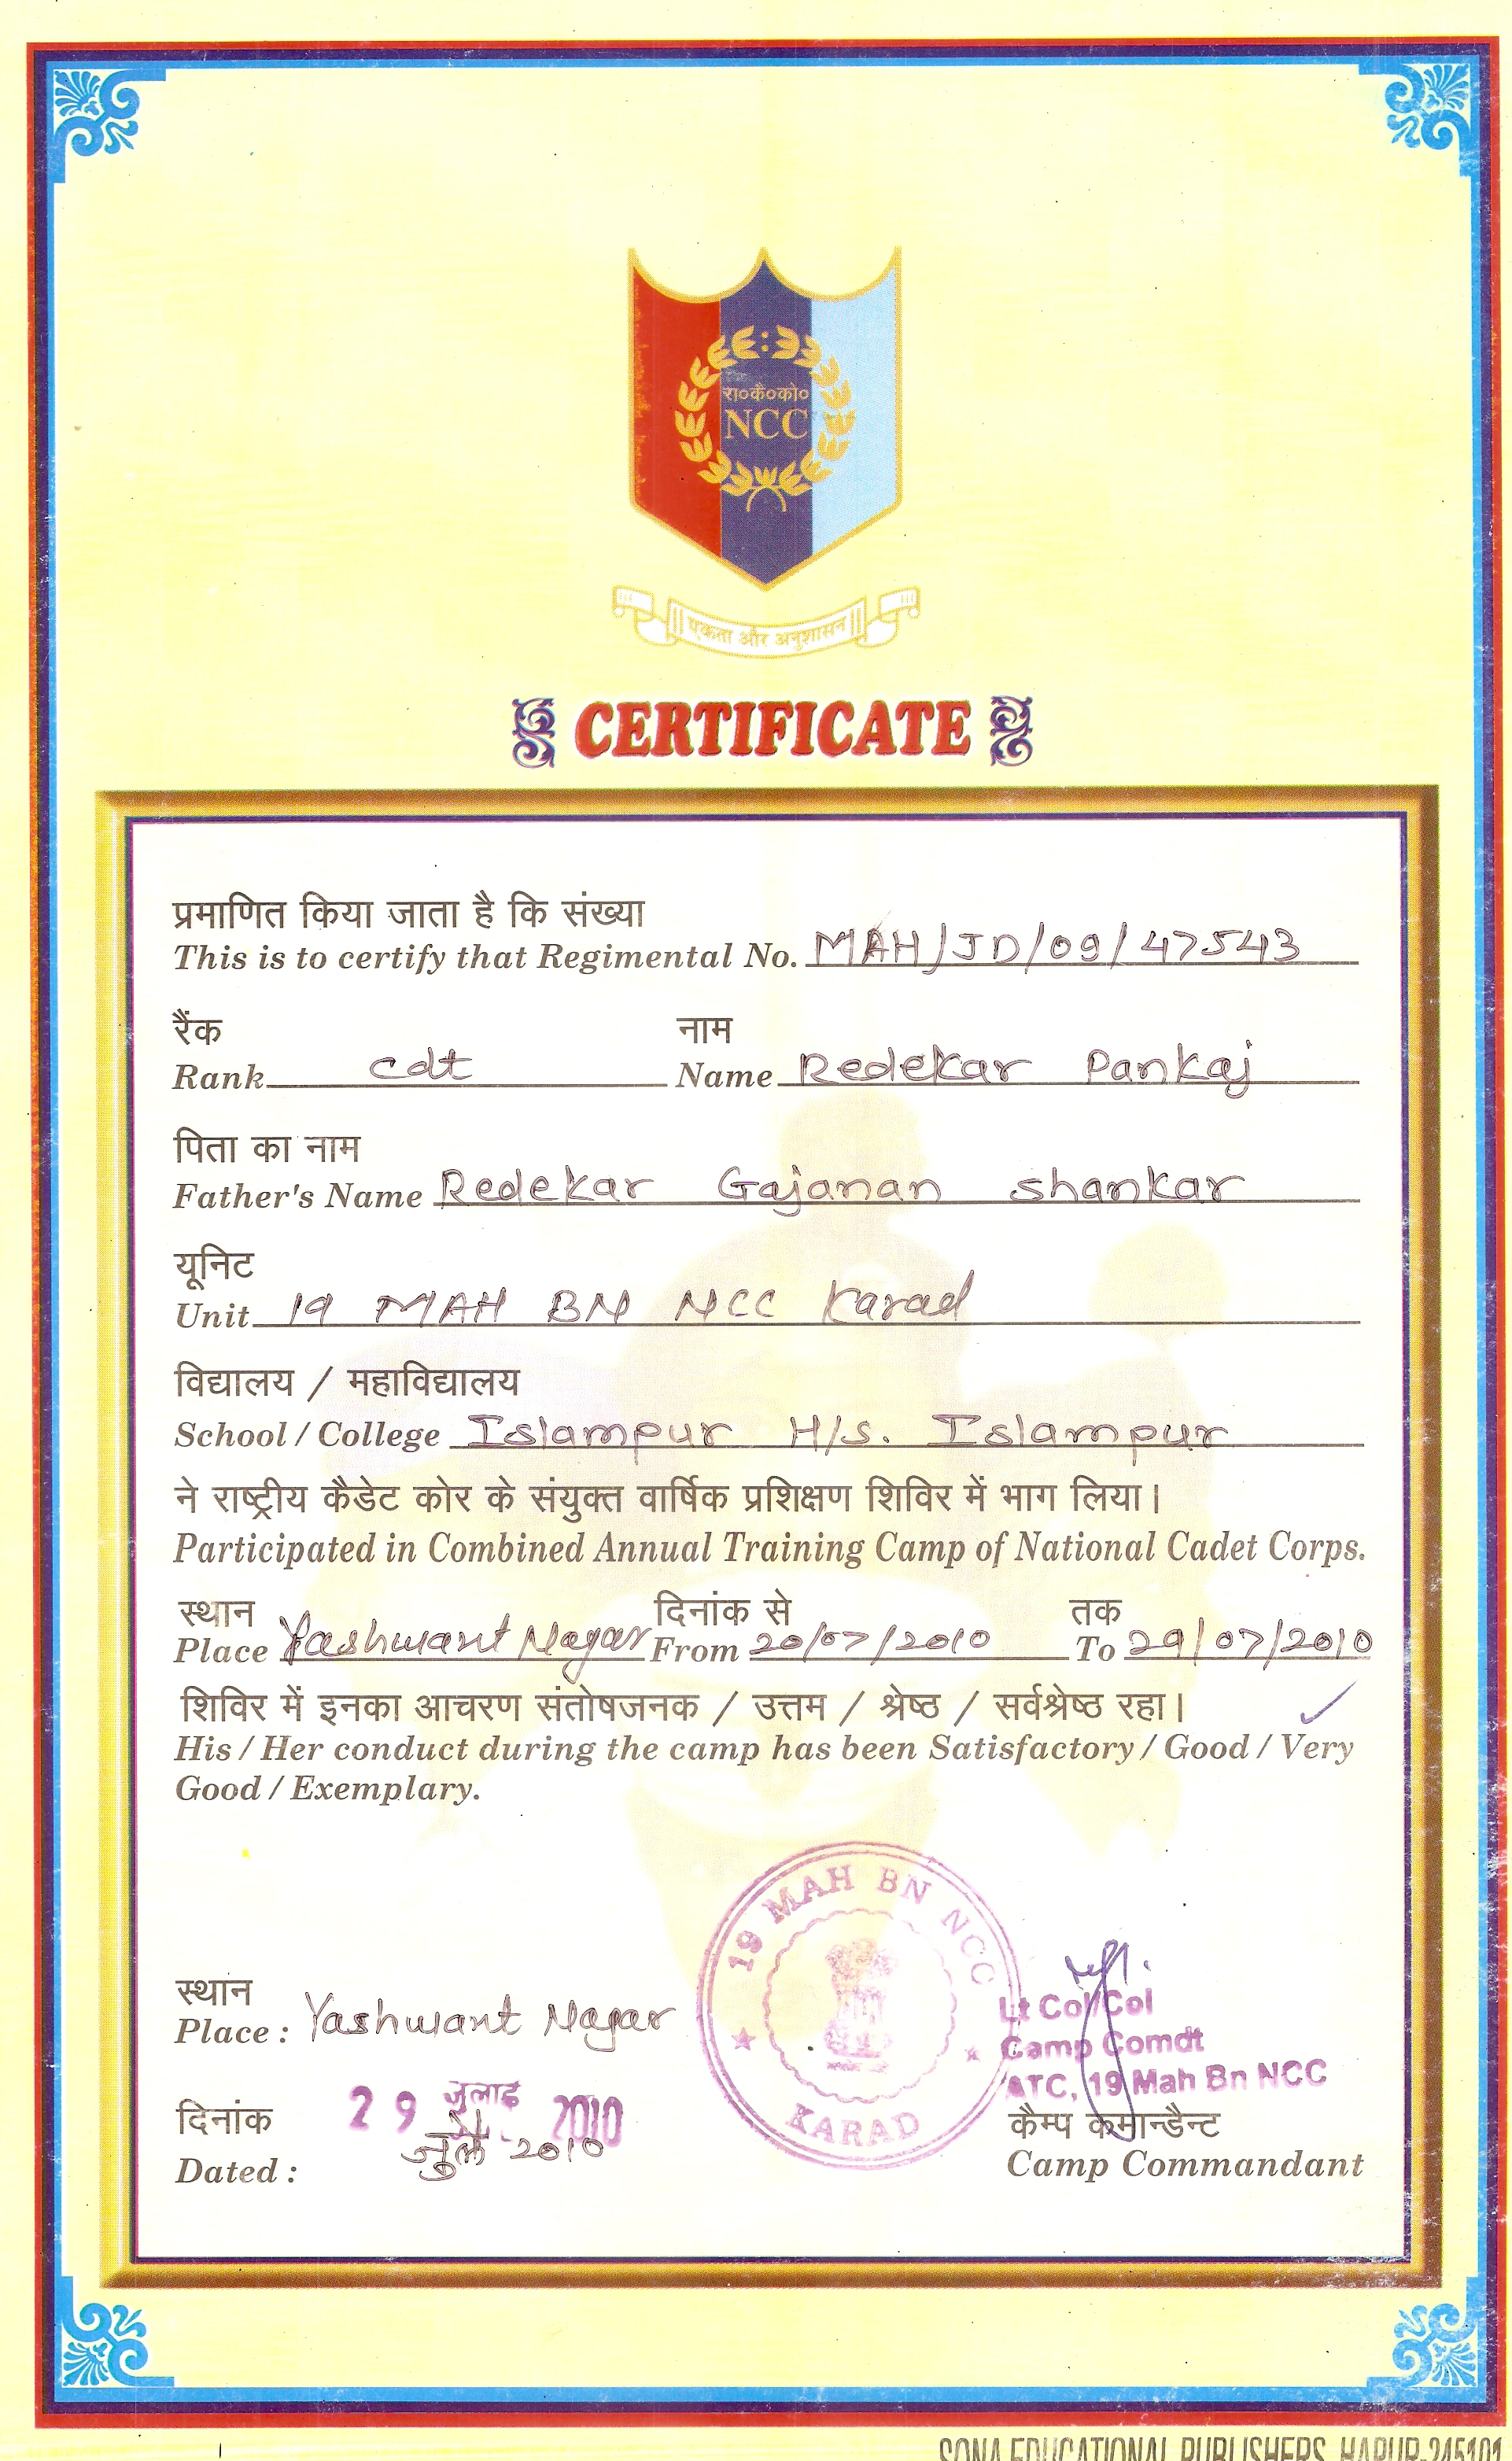 रा०कै०को०
NCC
एकता और अनुशासन
CERTIFICATE
प्रमाणित किया जाता है कि संख्या
This is to certify that Regimental No. MAH/JD/09/47543
रैंक नाम
Rank cdt Name Redekar Pankaj
पिता का नाम
Father's Name Redekar Gajanan Shankar
यूनिट
Unit 19 MAH BN NCC Karad
विद्यालय / महाविद्यालय
School / College Islampur H/S. Islampur
ने राष्ट्रीय कैडेट कोर के संयुक्त वार्षिक प्रशिक्षण शिविर में भाग लिया।
Participated in Combined Annual Training Camp of National Cadet Corps.
स्थान दिनांक से तक
Place Yashwant Nagar From 20/07/2010 To 29/07/2010
शिविर में इनका आचरण संतोषजनक / उत्तम / श्रेष्ठ / सर्वश्रेष्ठ रहा।
His / Her conduct during the camp has been Satisfactory / Good / Very
Good / Exemplary.
19 MAH BN NCC
KARAD
स्थान
Place : Yashwant Nagar
Lt Col/Col
Camp Comdt
ATC, 19 Mah Bn NCC
दिनांक 29 जुलाई 2010
जुलै 2010
Dated :
कैम्प कमान्डैन्ट
Camp Commandant
SONA EDUCATIONAL PUBLISHERS, HAPUR-245101